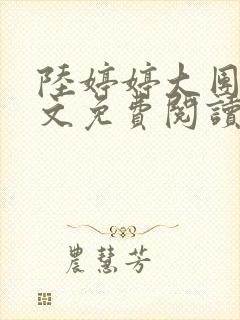 陸婷婷大團
文免費閱讀
農慧芳